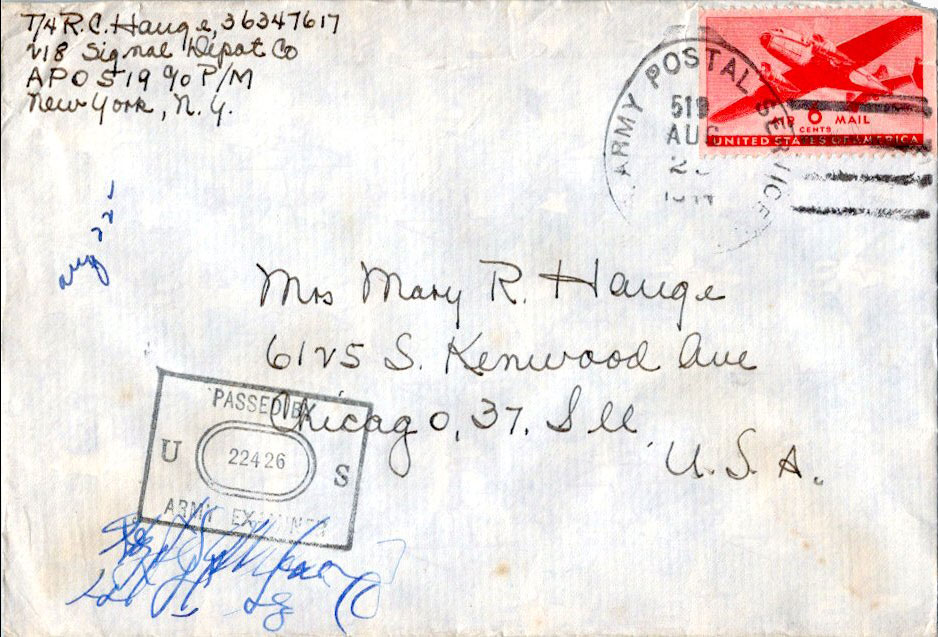 T/4 R.C. Hauge, 36347617
218 Signal Depot Co
APO 519 c/o P/M
New York, N.Y.
ARMY POSTAL SERVICE
519
AUG
AIR 6 MAIL
CENTS
UNITED STATES OF AMERICA
Aug 22
Mrs Mary R. Hauge
6125 S. Kenwood Ave
Chicago, 37, Ill.
U.S.A.
PASSED BY
U 22426 S
ARMY EXAMINER